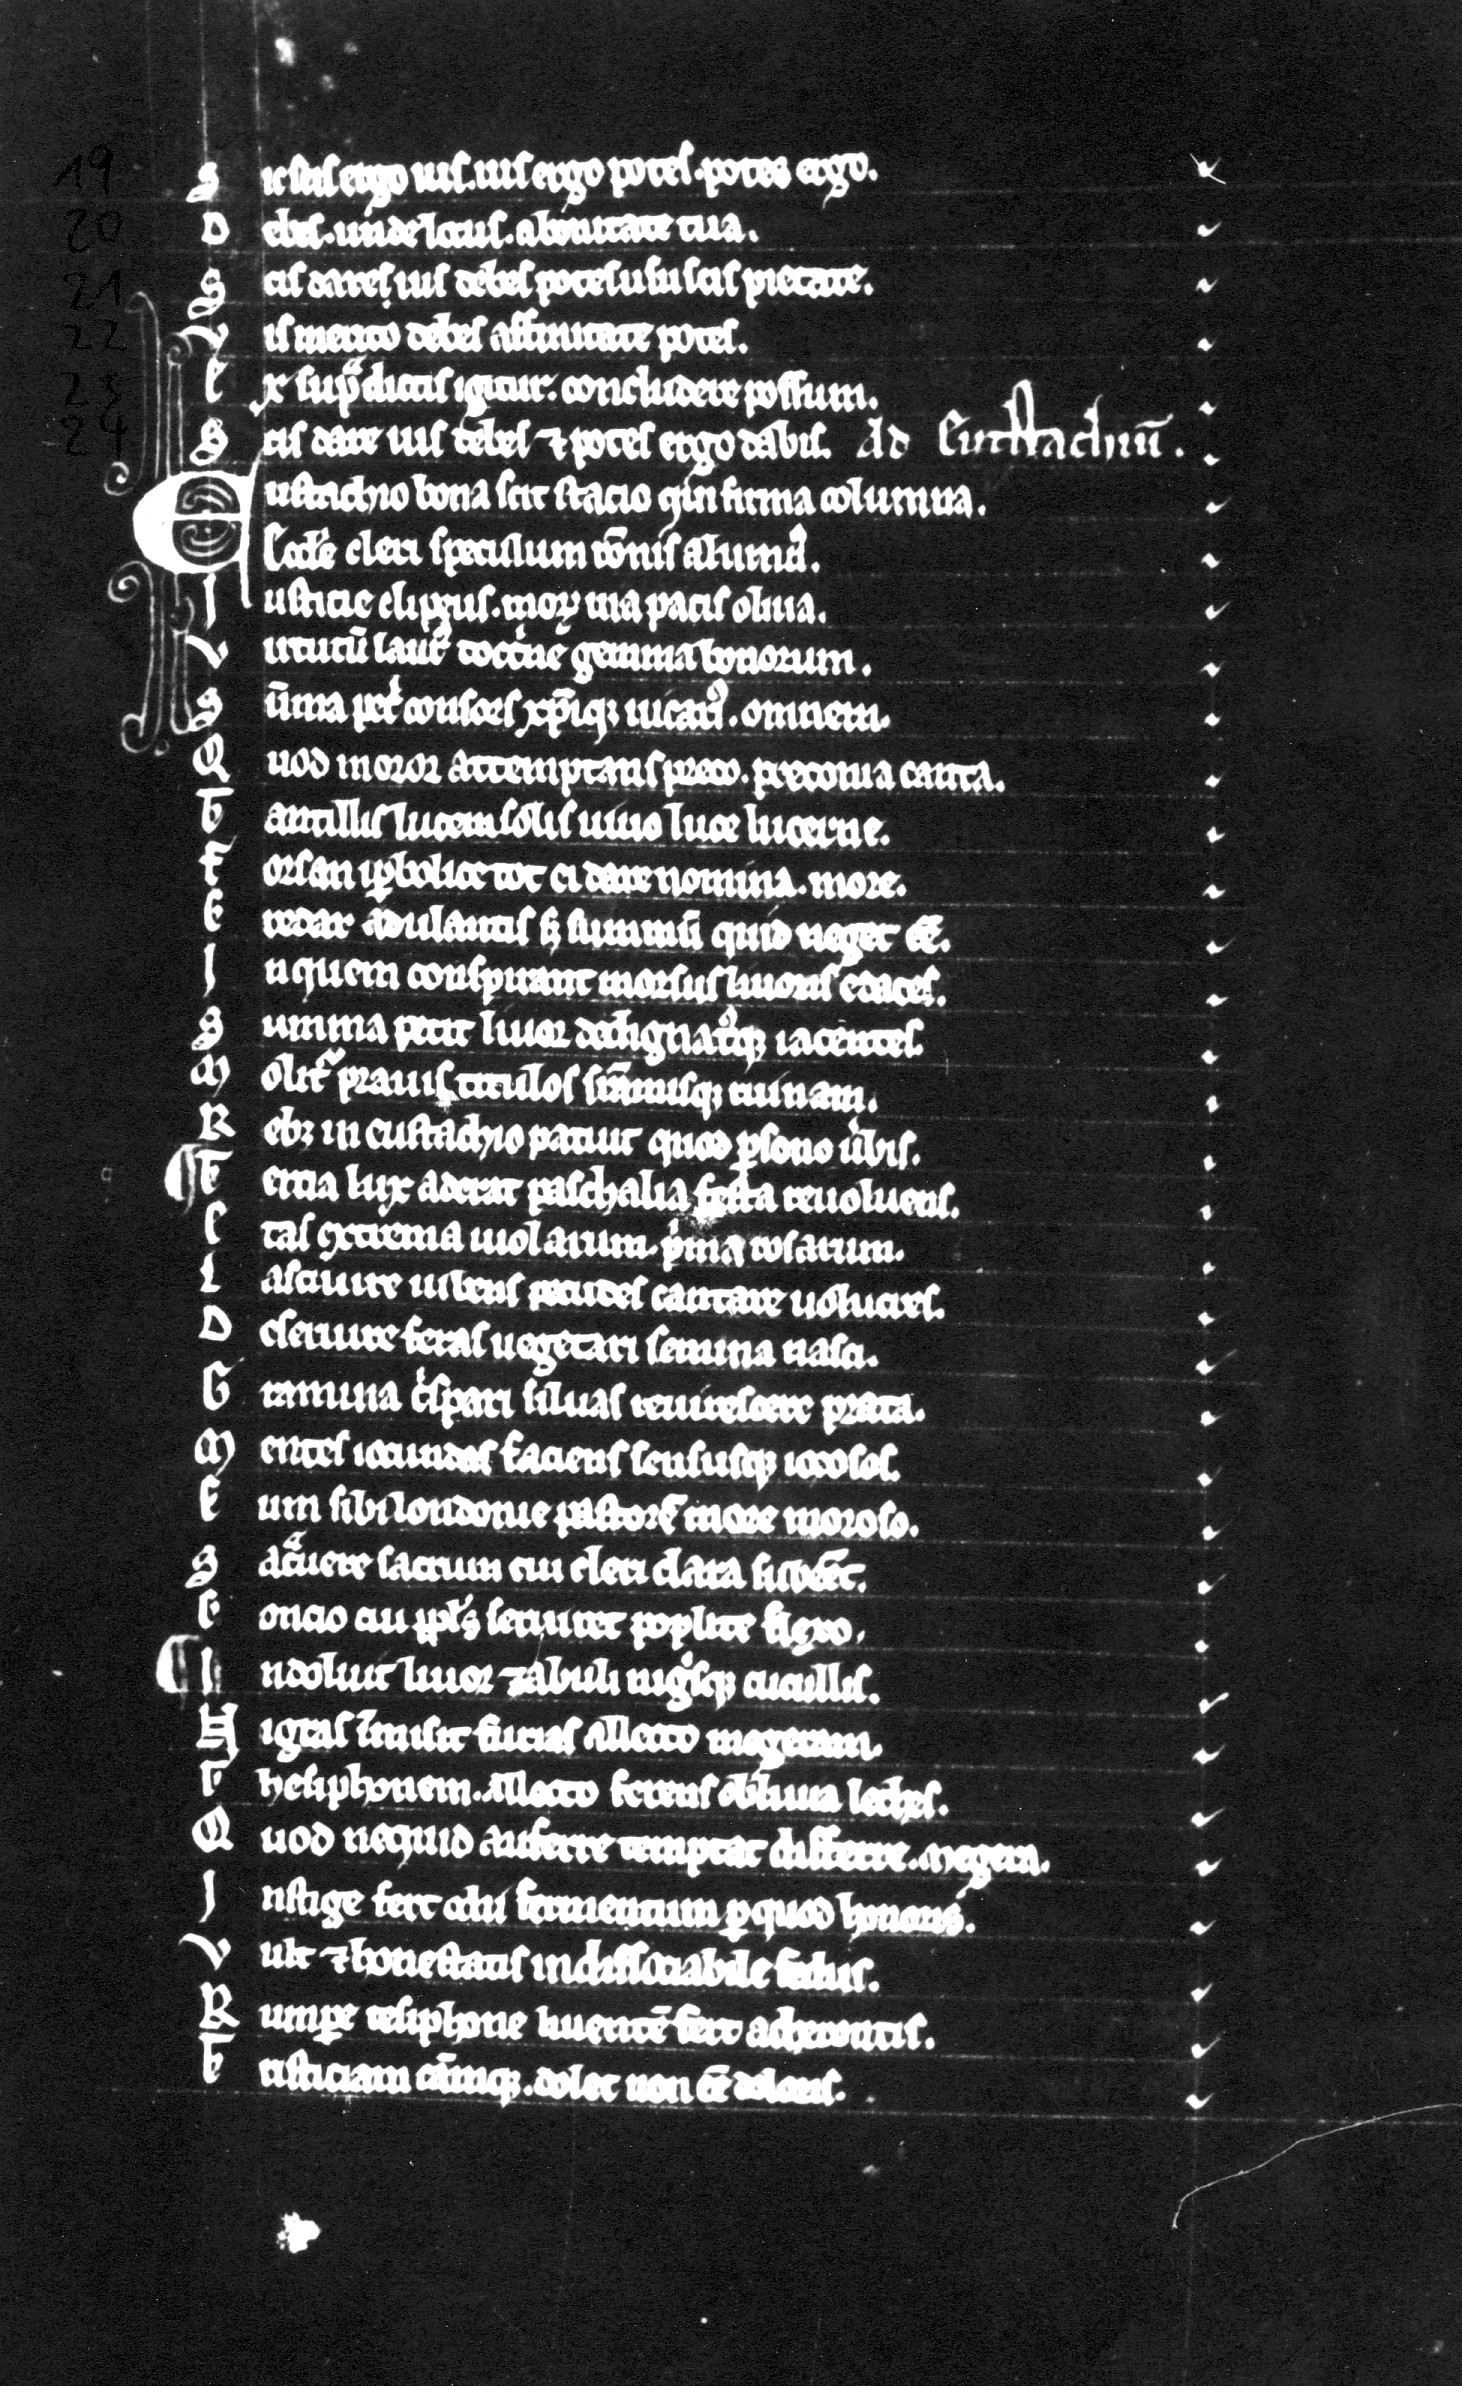 19 Sic scis ergo uis. uis ergo potes. potes ergo.
20 Debes. unde locus. a bonitate tua.
21 Scis dares, uis debes potes usu scis pietate.
22 Vis merito debes affinitate potes.
23 Ex sup̄dictis igitur. concludere possum.
24 Scis dare uis debes ⁊ potes ergo dabis. Ad Eustachiū.
Eustachio bona scit stacio qin firma columna.
Eccłe cleri speculum
Iusticie clipeus. moꝝ uia pacis oliua.
Virtutū laur doctne gemma bonorum.
Sūma pet consors xp̄iqꝫ uicari᷒. omnem.
Quod moror attemptans preco. preconia canta.
Tantillis lucem solis uiuo luce lucerne.
Forsan ipbolice tot ei dare nomina. more.
Credar adulantis sꝫ summū quid neget eē.
In quem conspirant morsus liuoris edaces.
Summa petit liuor dedignat᷒qꝫ iacentes.
Molit᷒ prauis titulos sūmisqꝫ ruinam.
Rebꝫ in eustachio patuit quod ꝑsono ūbis.
Tertia lux aderat paschalia festa reuoluens.
Etas extrema uiolarum. pimaqꝫ rosarum.
Lasciuire iubens pecudes cantare uolucres.
Deseruire feras uegetari semina nasci.
Gramina cispari siluas reuirescere prata.
Mentes iocundas faciens sensusqꝫ iocosos.
Cum sibi londonie pastorē more moroso.
Sacuere sacrum cui cleri clara
Concio cui ppłs seruiret poplite flexo.
Indoluit liuor zabuli nigisqꝫ cucullis.
Nigras īmisit furias allecto megeram.
Thesiphonem. Allecto ferens obliuia lethes.
Quod nequid auferre temptat differre. Megera.
Instige fert odii fermentum ꝑ quod honoris.
Vult ⁊ honestatis indissociabile fedus.
Rumpe tesiphone liuentē fert acherontis.
Tristiciam cāmqꝫ. dolet non eē doloris.